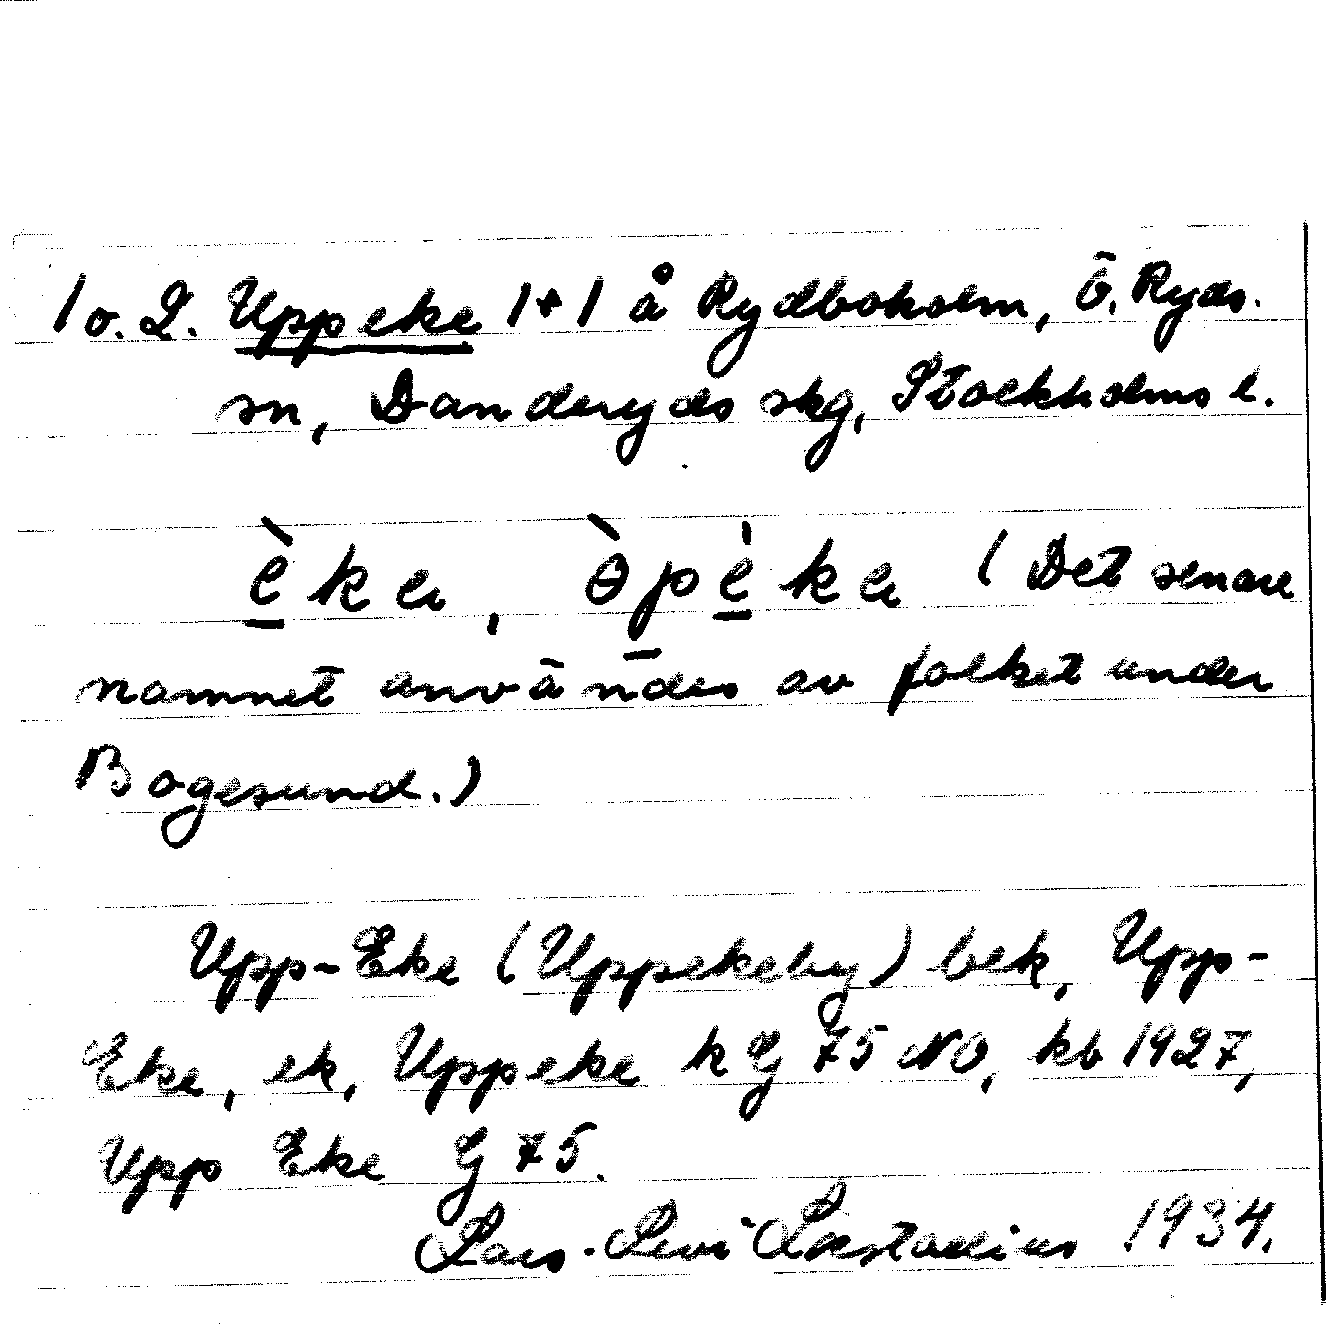 1 o. 2. Uppeke 1+1 å Rydboholm, Ö. Ryds.
sn, Danderyds skg, Stockholms l.
è̱ka, ɵ̀pè̱ka (Det senare
namnet användes av folket under
Bogesund.)
Upp-Eke (Uppekeby) bek, Upp-
Eke, ek, Uppeke k G 75 NO, kb 1927,
Upp Eke G 75.
Lars-Levi Læstadius 1934.